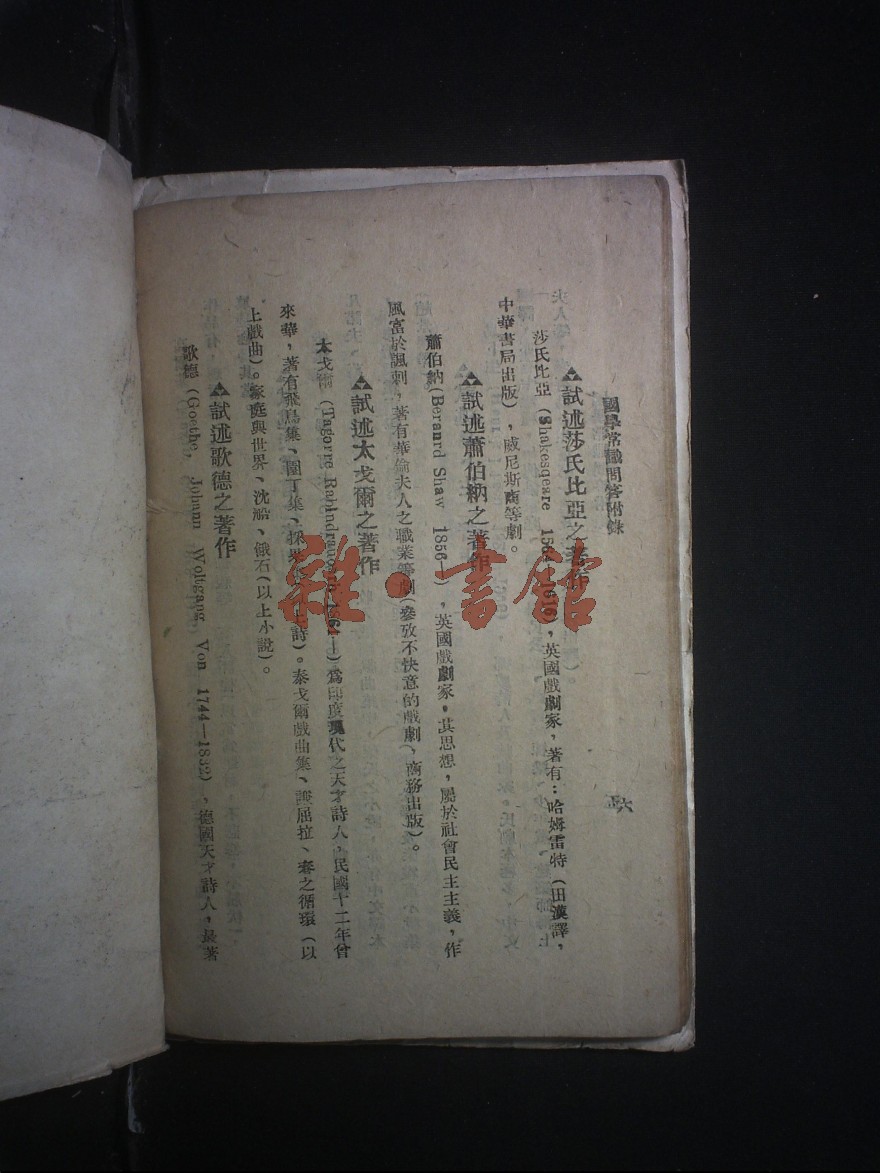 國學常識問答附錄
六五
試述莎氏比亞之著作
莎氏比亞(Shakesqeare 1564—1616),英國戲劇家,著有:哈姆雷特(田漢譯,
中華書局出版),威尼斯商等劇。
試述蕭伯納之著作
蕭伯納(Beranrd Shaw 1856—),英國戲劇家,其思想,屬於社會民主主義,作
風富於諷刺,著有華倫夫人之職業等劇(參攷不快意的戲劇,商務出版)。
試述太戈爾之著作
太戈爾(Tagorre 1861—)爲印度現代之天才詩人,民國十二年曾
來華,著有飛鳥集、園丁集、採果集(以上詩)。泰戈爾戲曲集、謙屈拉、春之循環(以
上戲曲)。家庭與世界、沈船、餓石(以上小說)。
試述歌德之著作
歌德(Goethe, Johann Woltgang, Von 1744—1832),德國天才詩人,最著
雜·書館